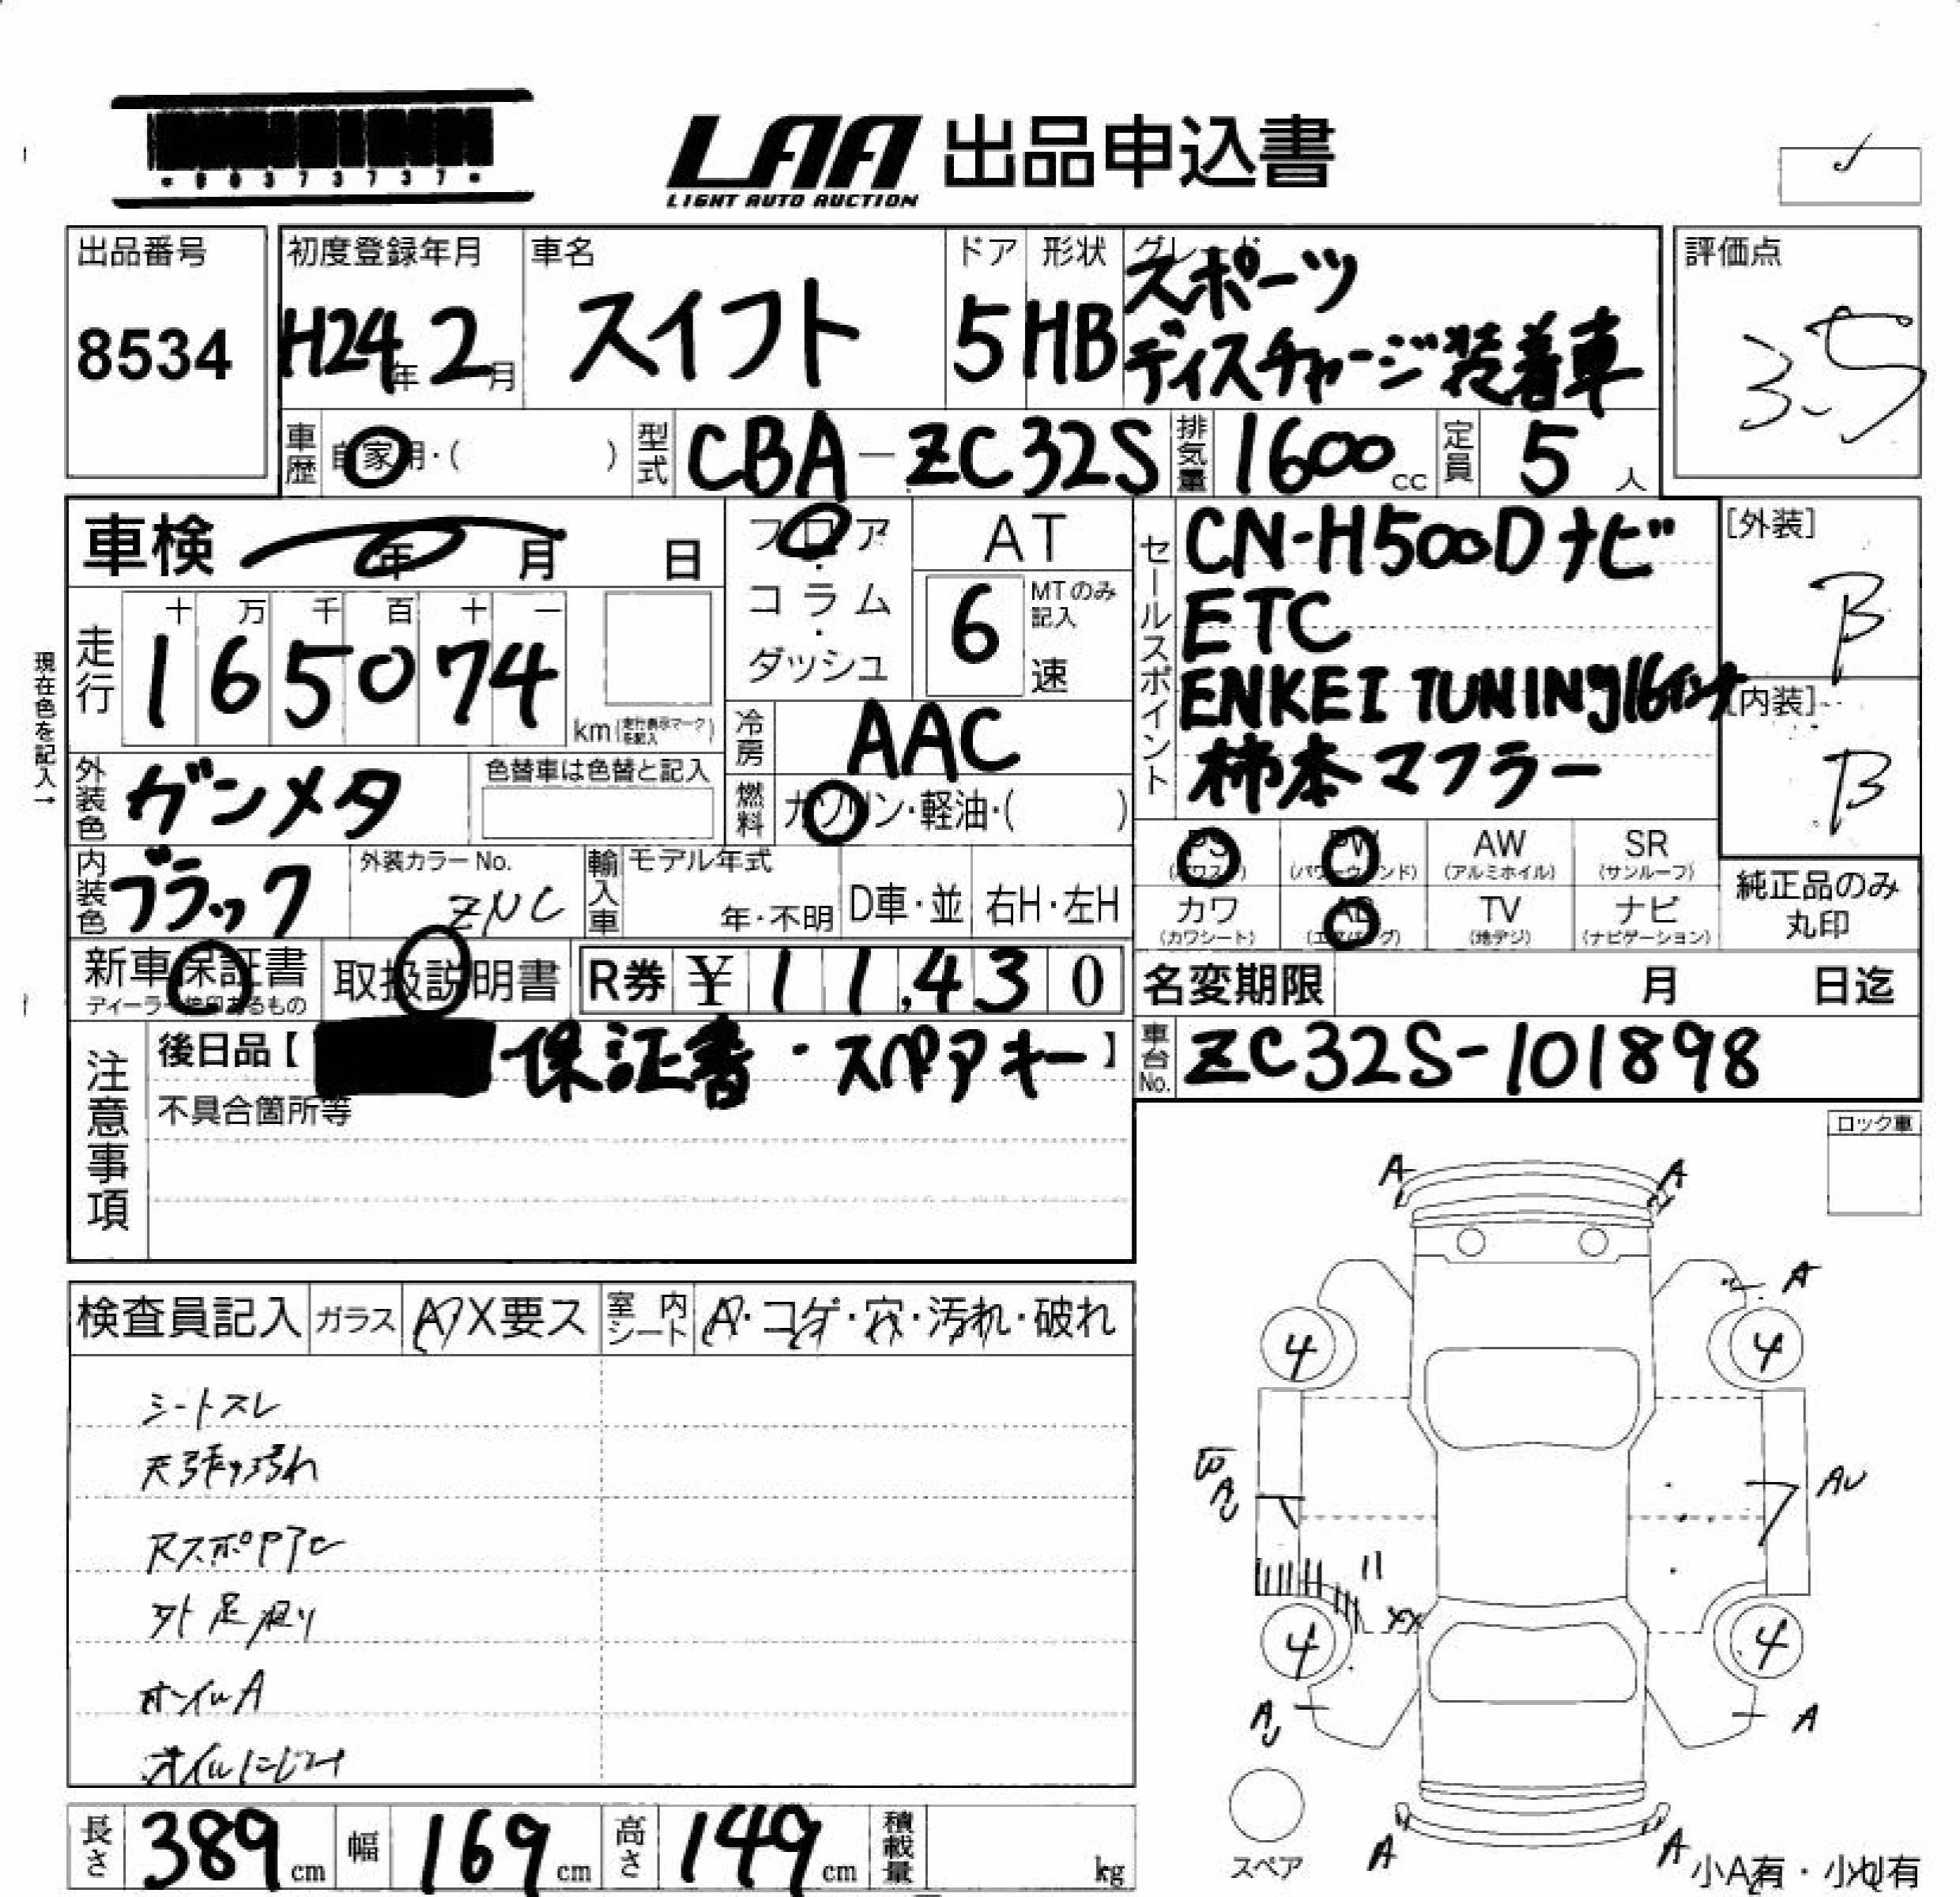 •6037373737•
LAA 出品申込書
LIGHT AUTO AUCTION
出品番号
8534
初度登録年月
H24年2月
車名
スイフト
ドア
5
形状
HB
グレード
スポーツ
ディスチャージ装着車
評価点
3.5
車歴 自家用・( )
型式 CBA-ZC32S
排気量 1600cc
定員 5人
車検 年 月 日
フロア・コラム・ダッシュ
AT
6 MTのみ記入 速
走行
十 万 千 百 十 一
165074
km(走行表示マークを記入)
現在色を記入→
冷房 AAC
外装色 ガンメタ
色替車は色替と記入
燃料 ガソリン・軽油・( )
内装色 ブラック
外装カラーNo.
輸入車 モデル年式
年・不明
D車・並
右H・左H
新車保証書
取扱説明書
R券 ¥11,430
セールスポイント
CN-H500Dナビ
ETC
ENKEI TUNING16インチ
柿本マフラー
[外装]
B
[内装]
B
PS (パワステ)
PW (パワーウィンド)
AW (アルミホイル)
SR (サンルーフ)
カワ (カワシート)
AB (エアバッグ)
TV (地デジ)
ナビ (ナビゲーション)
純正品のみ
丸印
名変期限 月 日迄
車台No. ZC32S-101898
注意事項
後日品【 保証書・スペアキー】
不具合箇所等
ロック車
検査員記入
ガラス
A X要ス
室内シート
A・コゲ・穴・汚れ・破れ
シートスレ
天張り汚れ
外足廻り
オイルにじみ
A
A
A
4
4
AU
4
4
A
A
A
A
スペア
小A有・小U有
長さ 389cm
幅 169cm
高さ 149cm
積載量 kg